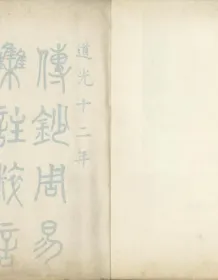 道光十二年
傳鈔周易
集註